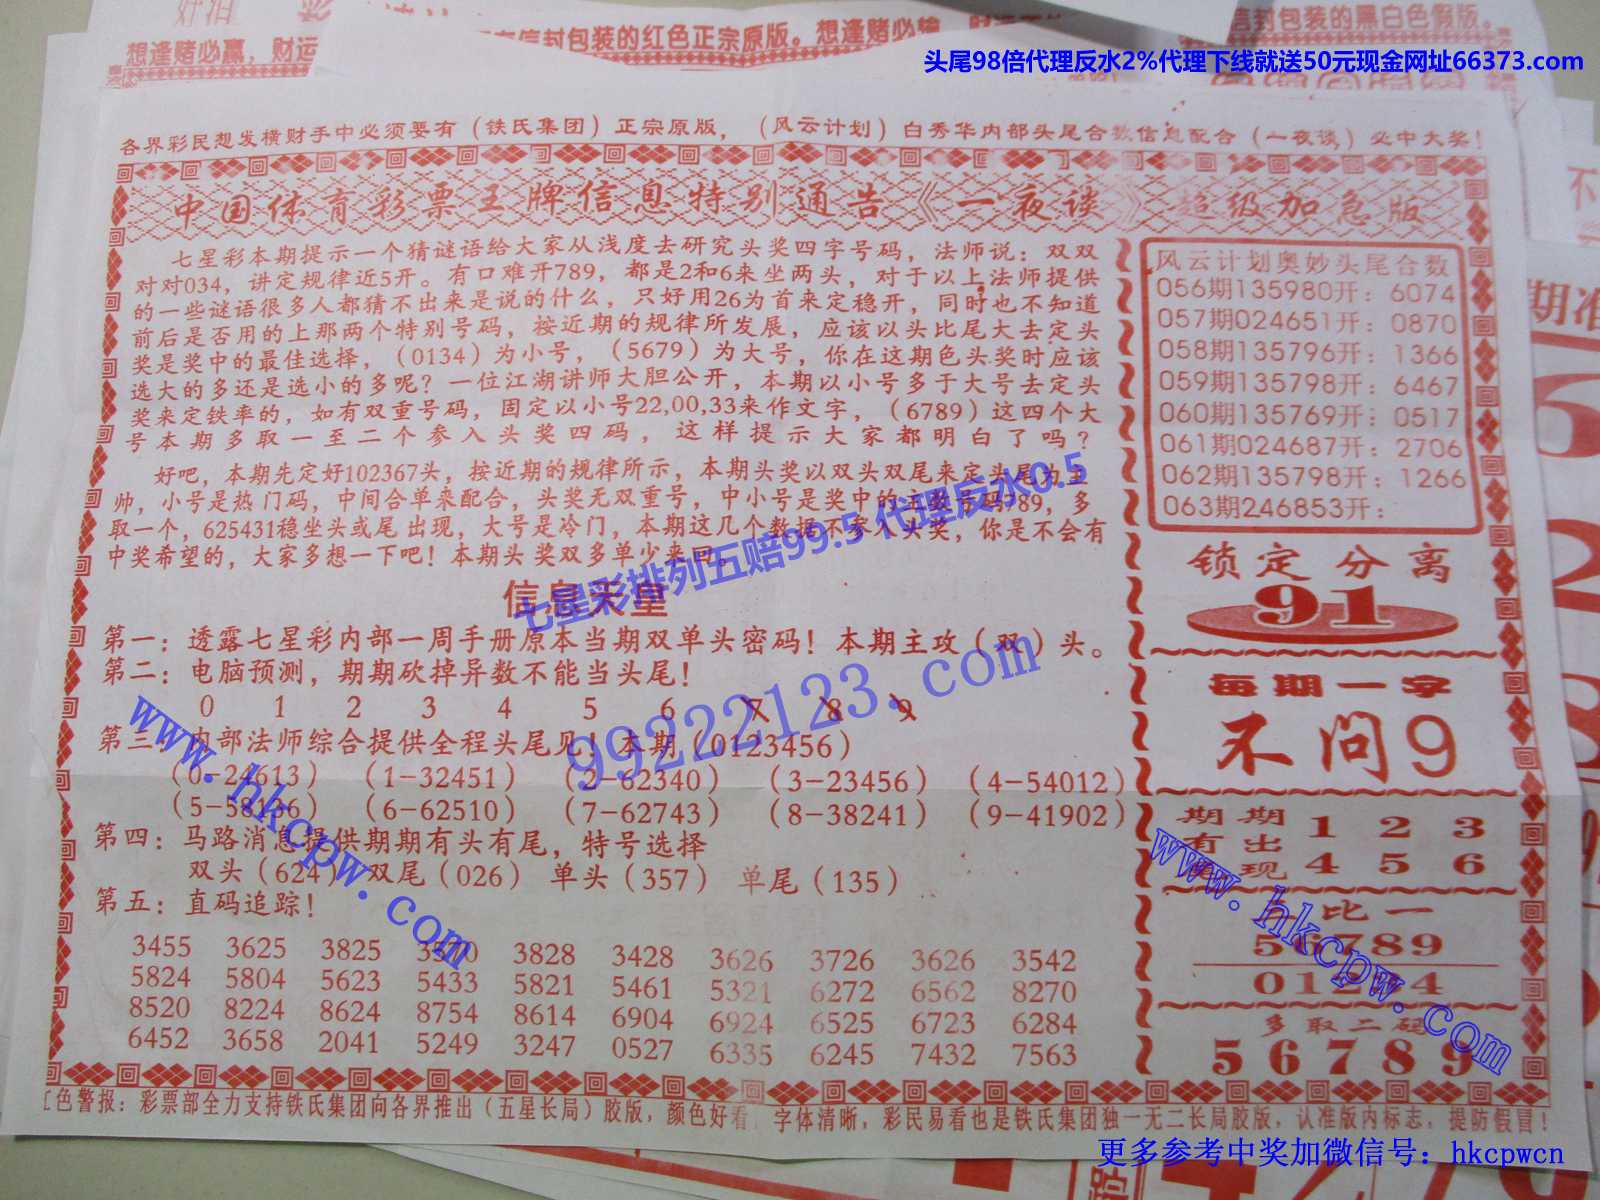 想逢赌必赢，财运
信封包装的红色正宗原版。想逢赌必输
信封包装的黑白色假版。
头尾98倍代理反水2%代理下线就送50元现金网址66373.com
各界彩民想发横财手中必须要有（铁氏集团）正宗原版，（风云计划）白秀华内部头尾合数信息配合（一夜谈）必中大奖！
中国体育彩票王牌信息特别通告《一夜谈》超级加急版
七星彩本期提示一个猜谜语给大家从浅度去研究头奖四字号码，法师说：双双
对对034，讲定规律近5开。有口难开789，都是2和6来坐两头，对于以上法师提供
的一些谜语很多人都猜不出来是说的什么，只好用26为首来定稳开，同时也不知道
前后是否用的上那两个特别号码，按近期的规律所发展，应该以头比尾大去定头
奖是奖中的最佳选择，（0134）为小号，（5679）为大号，你在这期色头奖时应该
选大的多还是选小的多呢？一位江湖讲师大胆公开，本期以小号多于大号去定头
奖来定铁率的，如有双重号码，固定以小号22,00,33来作文字，（6789）这四个大
号本期多取一至二个参入头奖四码，这样提示大家都明白了吗？
好吧，本期先定好102367头，按近期的规律所示，本期头奖以双头双尾来定头尾为主
帅，小号是热门码，中间合单来配合，头奖无双重号，中小号是奖中的主数号码789，多
取一个，625431稳坐头或尾出现，大号是冷门，本期这几个数据不参入头奖，你是不会有
中奖希望的，大家多想一下吧！本期头奖双多单少来回。
七星彩排列五赔99.5代理反水0.5
信息天皇
第一：透露七星彩内部一周手册原本当期双单头密码！本期主攻（双）头。
第二：电脑预测，期期砍掉异数不能当头尾！
0 1 2 3 4 5 6 7 8 9
第三：内部法师综合提供全程头尾见！本期（0123456）
（0-24613）（1-32451）（2-62340）（3-23456）（4-54012）
（5-58136）（6-62510）（7-62743）（8-38241）（9-41902）
第四：马路消息提供期期有头有尾，特号选择
双头（624）双尾（026）单头（357）单尾（135）
第五：直码追踪！
3455 3625 3825 3570 3828 3428 3626 3726 3626 3542
5824 5804 5623 5433 5821 5461 5321 6272 6562 8270
8520 8224 8624 8754 8614 6904 6924 6525 6723 6284
6452 3658 2041 5249 3247 0527 6335 6245 7432 7563
99222123.com
www.hkcpw.com
风云计划奥妙头尾合数
056期135980开：6074
057期024651开：0870
058期135796开：1366
059期135798开：6467
060期135769开：0517
061期024687开：2706
062期135798开：1266
063期246853开：
锁定分离
91
每期一字
不问9
期期 1 2 3
有出
现 4 5 6
比一
56789
01234
多取二码
56789
www.hkcpw.com
红色警报：彩票部全力支持铁氏集团向各界推出（五星长局）胶版，颜色好看，字体清晰，彩民易看也是铁氏集团独一无二长局胶版，认准版内标志，提防假冒！
更多参考中奖加微信号：hkcpwcn